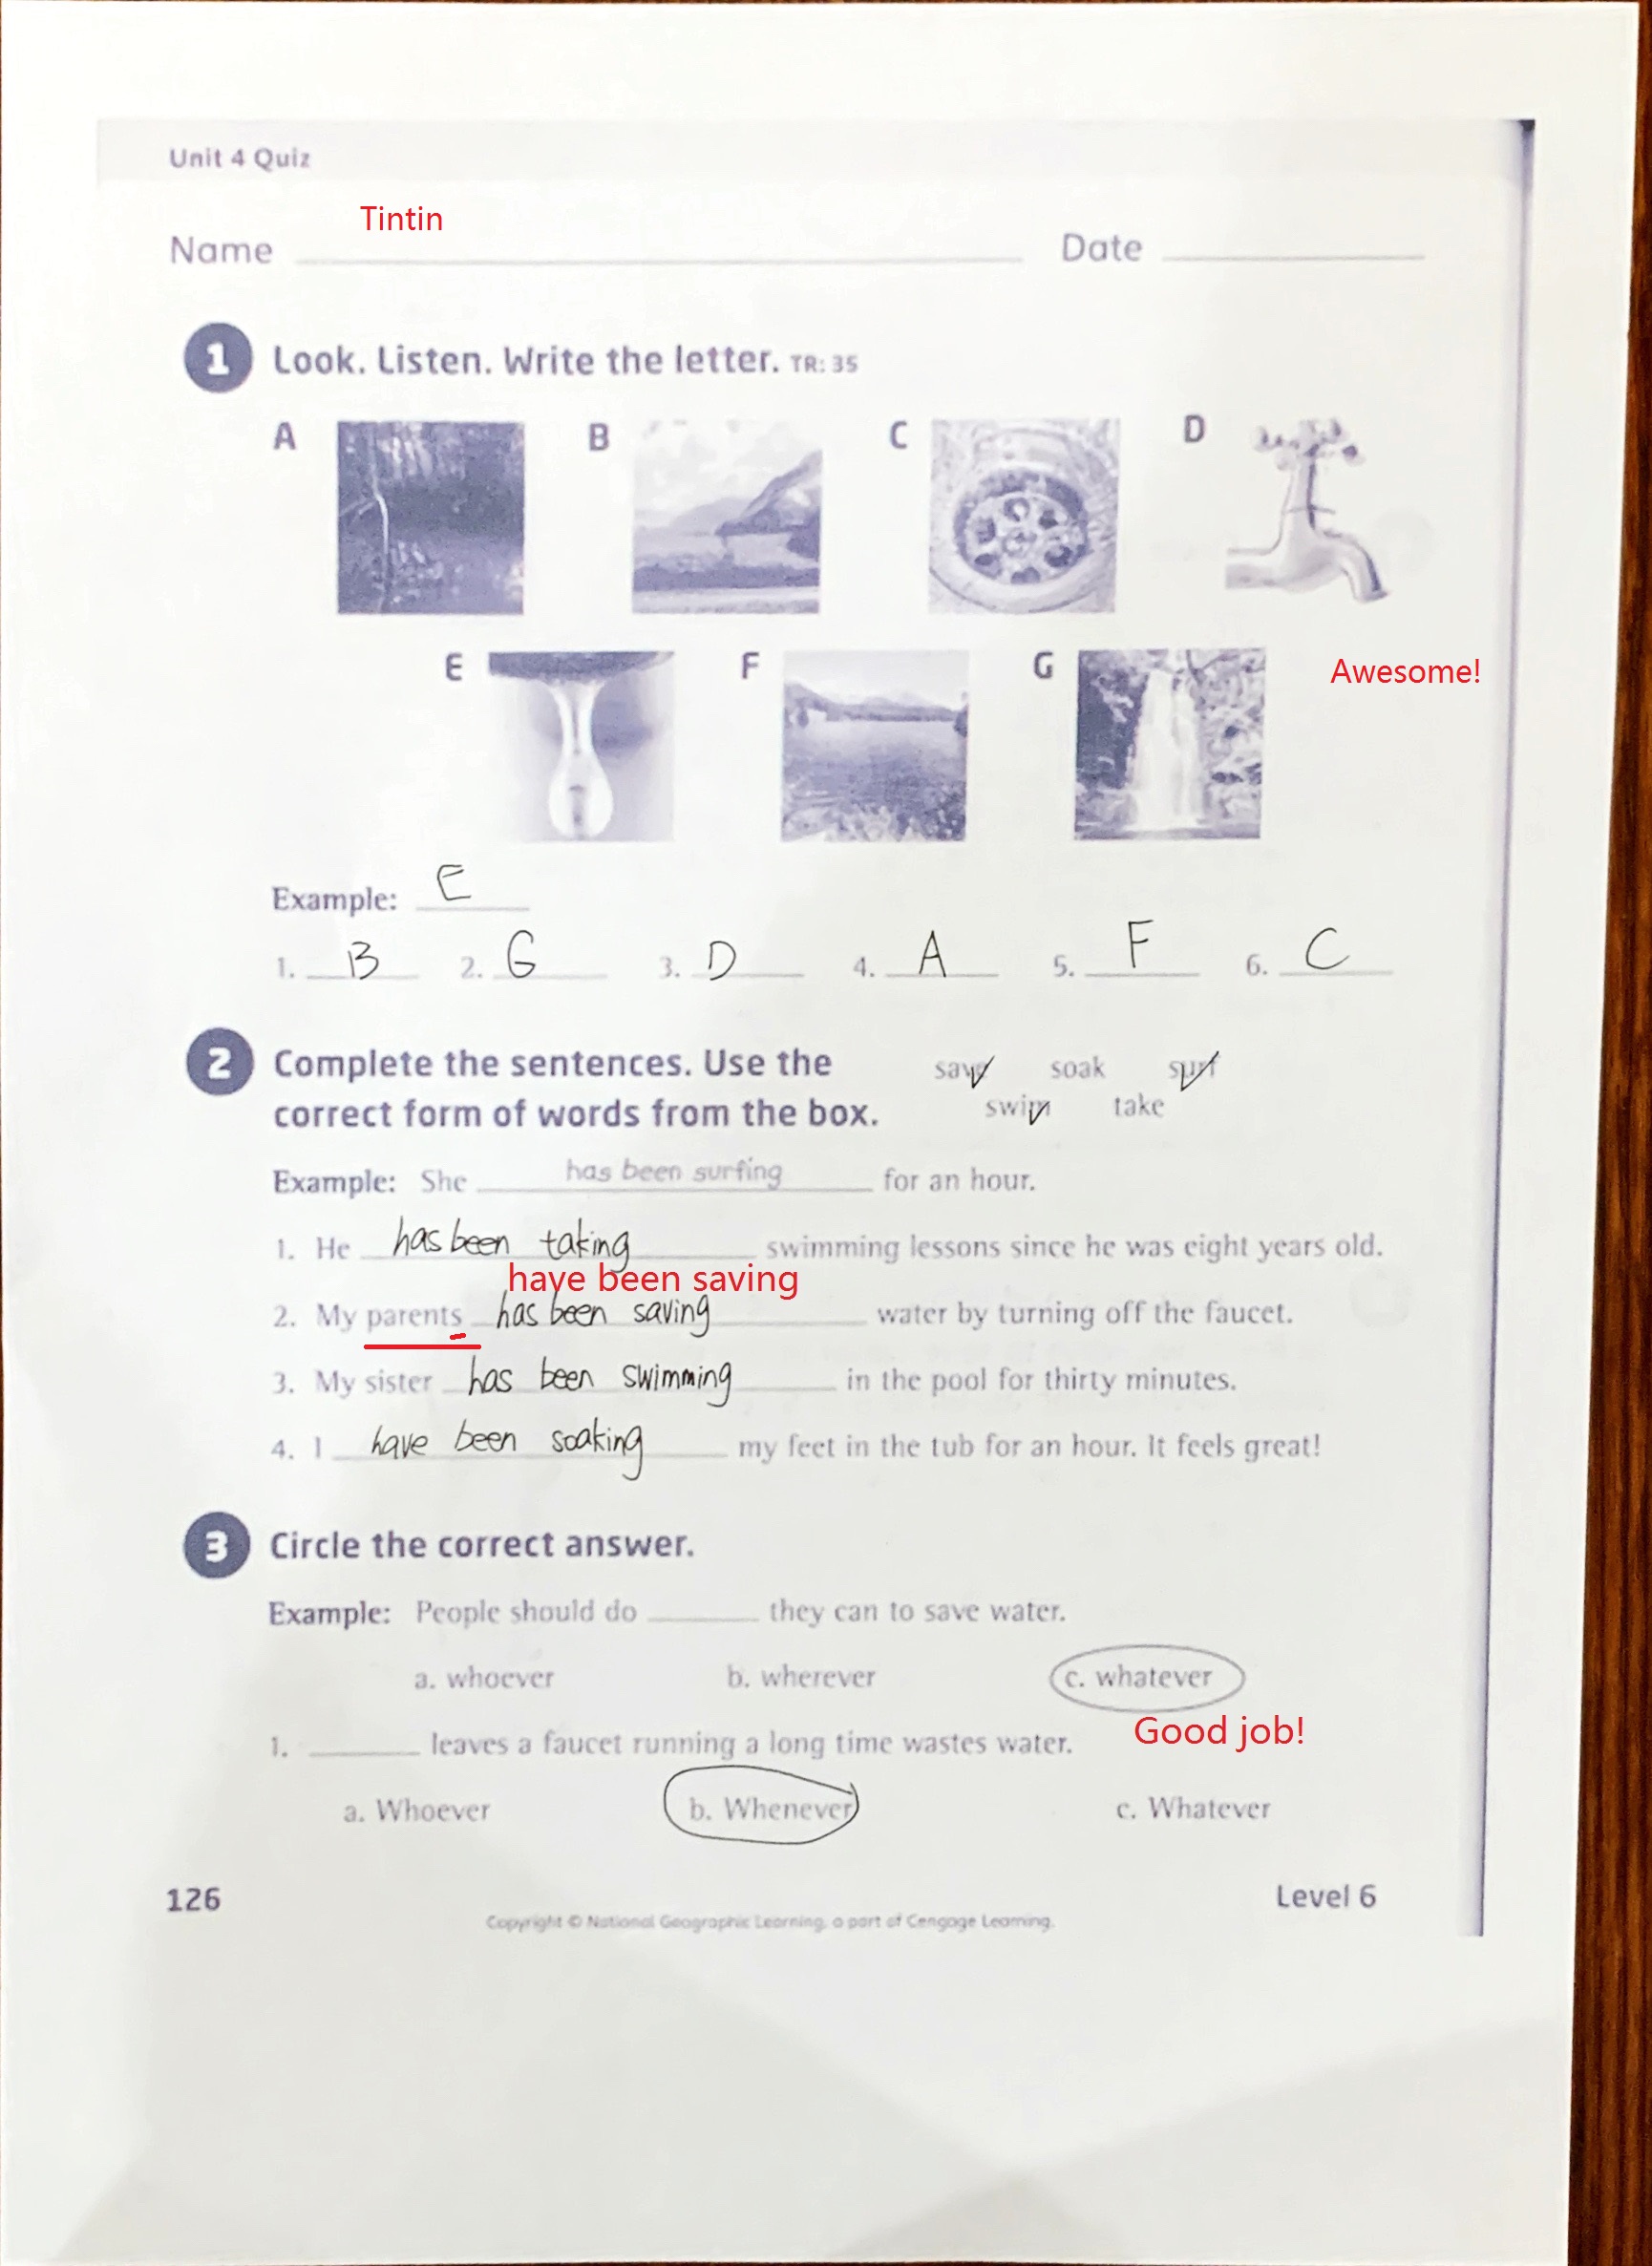 Unit 4 Quiz
Tintin
Name Date
1 Look. Listen. Write the letter. TR: 35
A B C D
E F G Awesome!
Example: E
1. B 2. G 3. D 4. A 5. F 6. C
2 Complete the sentences. Use the
correct form of words from the box.
save soak surf
swim take
Example: She has been surfing for an hour.
1. He has been taking swimming lessons since he was eight years old.
have been saving
2. My parents has been saving water by turning off the faucet.
3. My sister has been swimming in the pool for thirty minutes.
4. I have been soaking my feet in the tub for an hour. It feels great!
3 Circle the correct answer.
Example: People should do they can to save water.
a. whoever b. wherever c. whatever
Good job!
1. leaves a faucet running a long time wastes water.
a. Whoever b. Whenever c. Whatever
126 Level 6
Copyright © National Geographic Learning, a part of Cengage Learning.